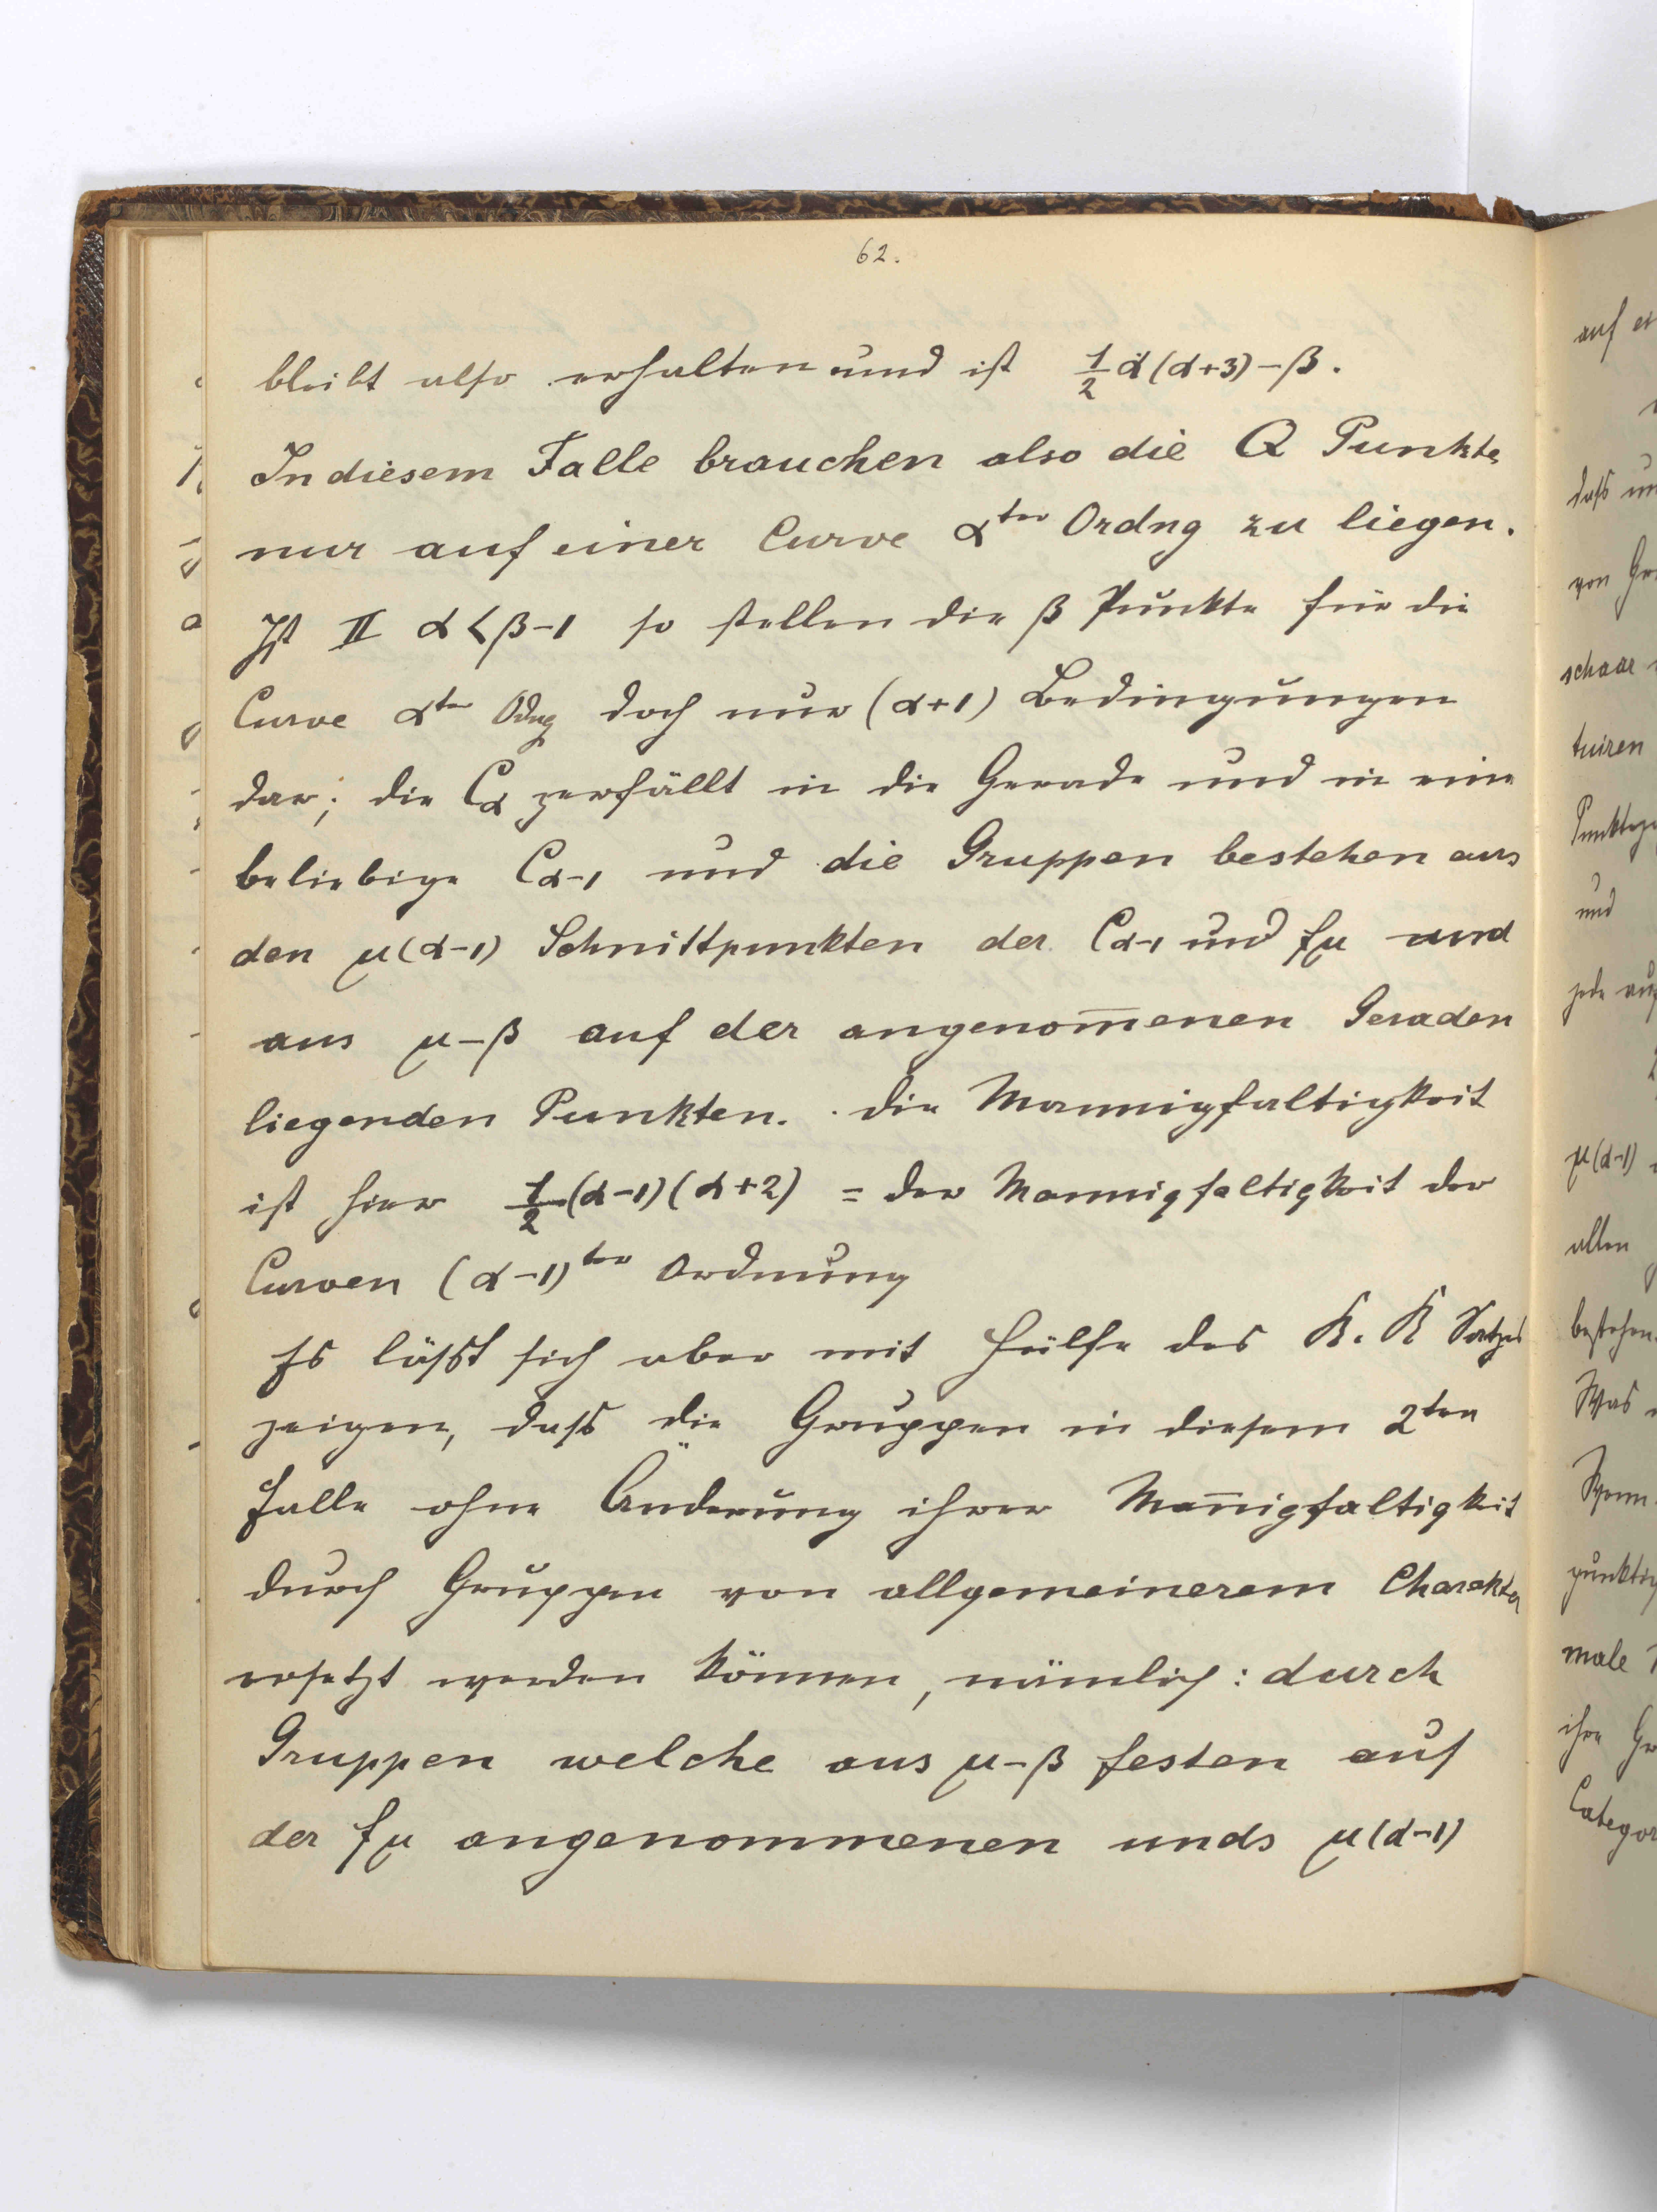 62.
bleibt also erhalten und ist ½ α(α+3)-β.
In diesem Falle brauchen also die Q Punkte
nur auf einer Curve α^ter Ordng zu liegen.
Ist II α<β-1 so stellen die β Punkte für die
Curve α^ter Odng doch nur (α+1) Bedingungen
dar; die Cα zerfällt in die Gerade und in eine
beliebige Cα-1 und die Gruppen bestehen aus
den μ(α-1) Schnittpunkten der Cα-1 und fμ und
aus μ-β auf der angenom̅enen Geraden
liegenden Punkten. die Mannigfaltigkeit
ist hier ½(α-1)(α+2) = der Mannigfaltigkeit der
Curven (α-1)^ter Ordnung
Es läßt sich aber mit Hülfe des R. R Satzes
zeigen, daß die Gruppen in diesem 2^ten
Falle ohne Änderung ihrer Man̅igfaltigkeit
durch Gruppen von allgemeinerem Charakter
ersetzt werden können, nämlich: durch
Gruppen welche aus μ-β festen auf
der fμ angenommenen unds μ(α-1)
auf
daß
von
schaar
tuiren
und
jede
μ(α-1)
allen
bestehen.
Was
Wenn
male
ihre